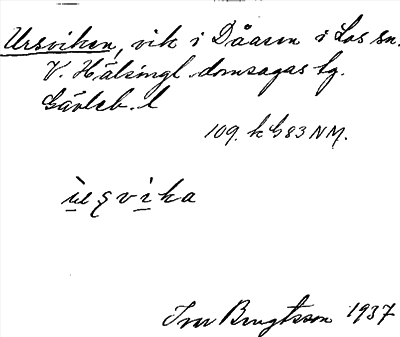 Ursviken, vik i Dåasen i Los sn.
V. Hälsingl. domsagas tg.
Gävleb. l
109. k G83 NM.
vika
Bengtsson 1937